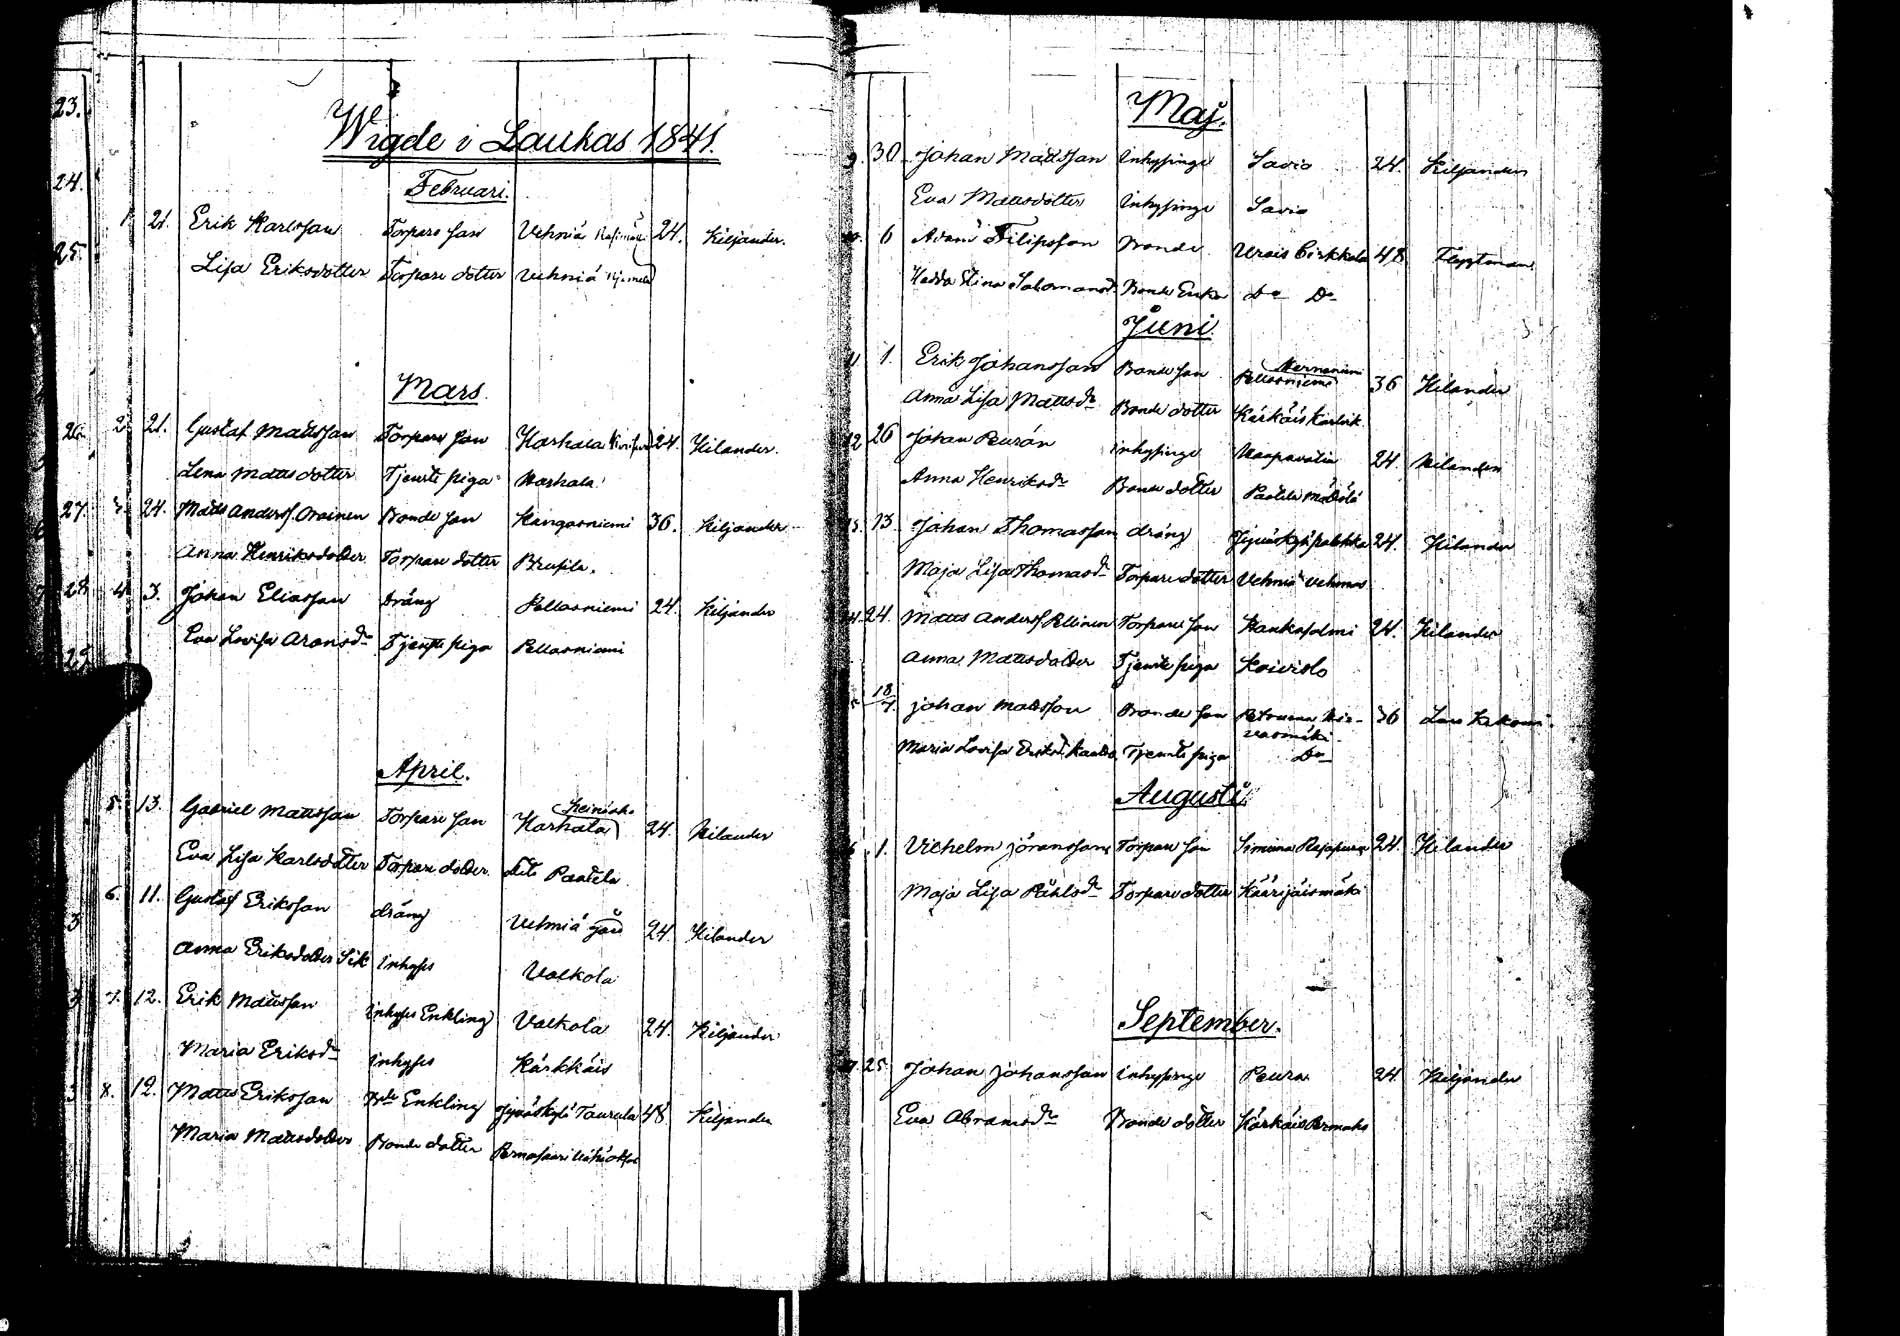 Wigde i Laukas 1841.
Februari.
1. 21. Erik Karlsson Torpare son Vehniä 24. Kiljander.
Lisa Eriksdotter Torpare dotter Vehniä
Mars
2. 21. Gustaf Mattsson Torpare son Harhala 24. Kilander.
Lena Mattsdotter Tjenste piga Harhala
3. 24. Matts Anderss. Orainen Bonde son Kangasniemi 36. Kiljander
Anna Henriksdotter Torpare dotter
4. 3. Johan Eliasson Dräng Pellosniemi 24. Kiljander
Eva Lovisa Aronsdr Tjenste piga Pellosniemi
April.
5. 13. Gabriel Mattsson Torpare son Harhala 24. Kilander
Eva Lisa Karlsdotter Torpare dotter Dito Paatela
6. 11. Gustaf Eriksson dräng Vehniä gård 24. Kilander
Anna Eriksdotter Sik Inhyses Valkola
7. 12. Erik Mattsson Inhyses Enkling Valkola 24. Kiljander
Maria Eriksdr Inhyses Kärkkäis
8. 12. Matts Eriksson Bde Enkling Jyväskylä Taurula 48 Kiljander
Maria Mattsdotter Bonde dotter
23.
24.
25.
26.
27.
28
29
Maj.
9. 30. Johan Mattsson Inhysinge Savio 24. Kiljander
Eva Mattsdotter Inhysinge Savio
10. 6 Adam Filipsson Bonde Urais Cirkkala 48
Hedda Stina Salomonsd. Bonde Enka Do Do
Juni
11 1. Erik Johansson Bonde son Pellosniemi 36 Kilander
Anna Lisa Mattsdr Bonde dotter Kärkäis
12 26 Johan Peurán inhysinge Haapavatia 24. Kilander
Anna Henriksdr Bonde dotter Paatela
13. 13. Johan Thomasson dräng Jyväskylä 24. Kilander
Maja Lisa Thomasdr Torpare dotter Vehniä
14. 24. Matts Anderss. Pellinen Torpare son Hankasalmi 24. Kilander
Anna Mattsdotter Tjenste piga Koivisto
18/7. Johan Mattsson Bonde son Petruma 36
Maria Lovisa Eriksd. Tjenste piga Do
Augusti
1. Vilhelm Jöransson Torpare son Simuna 24. Kilander
Maja Lisa Påhlsdr Torpare dotter Käärijäismäki
September.
17. 25. Johan Johansson inhysinge Peura 24. Kiljander
Eva Abramsdr Bonde dotter Kärkäis